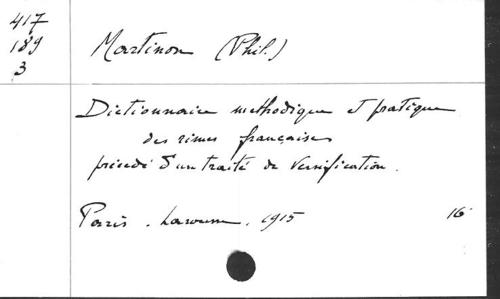 417
189
3
Martinon (Phil.)
Dictionnaire méthodique et pratique
des rimes françaises
précédé d'un traité de versification.
Paris. Larousse, 1915 16